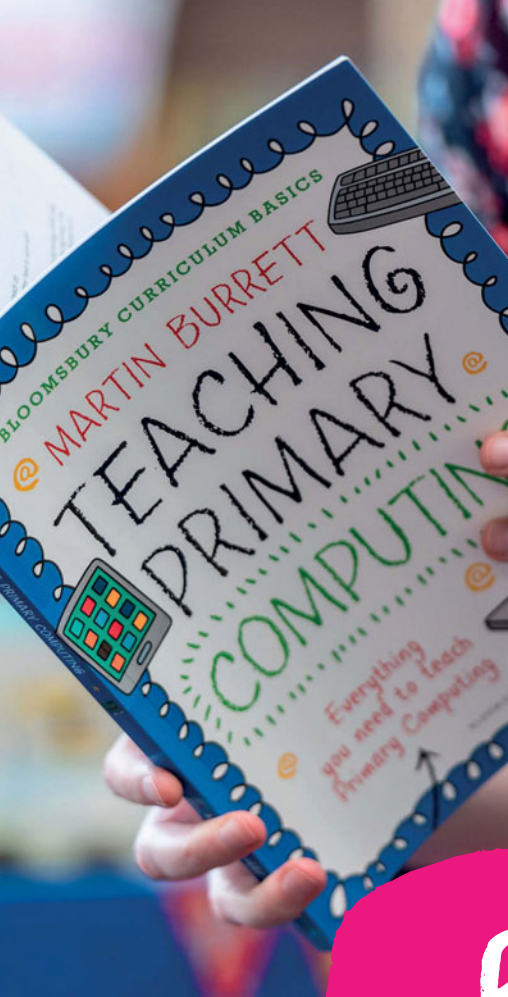 BLOOMSBURY CURRICULUM BASICS
@ MARTIN BURRETT
TEACHING
PRIMARY @
COMPUTIN
@
Everything
you need to teach
Primary Computing
@
PRIMARY COMPUTING